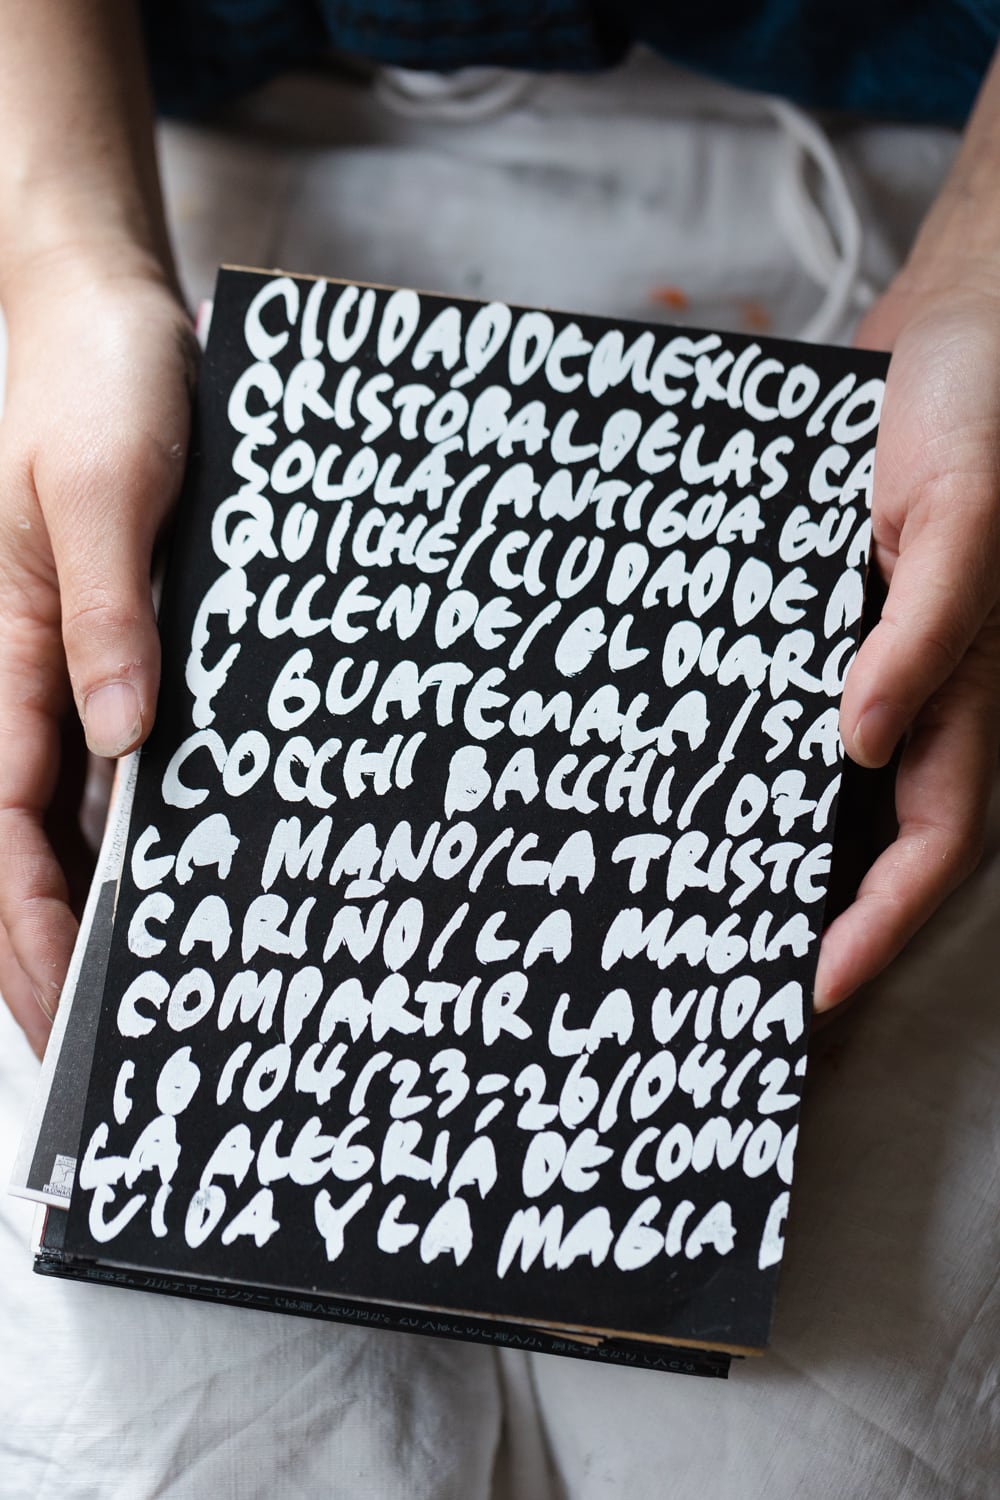 CIUDAD DE MÉXICO/O
CRISTÓBAL DE LAS CA
SOLOLÁ/ANTIGUA GUA
QUICHÉ/CIUDAD DE M
ALLENDE/EL DIARI
Y GUATEMALA/SA
COCCHI BACCHI/071
LA MANO/LA TRISTE
CARIÑO/LA MAGIA
COMPARTIR LA VIDA
10/04/23-26/04/2
LA ALEGRIA DE CONO
VIDA Y LA MAGIA D